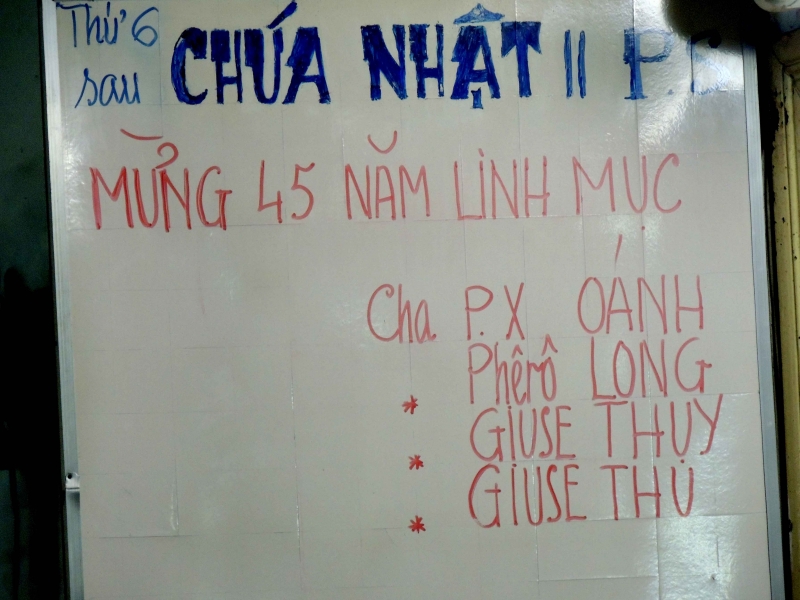 Thứ 6 sau CHÚA NHẬT II P.S
MỪNG 45 NĂM LINH MỤC
Cha P.X OÁNH
* Phêrô LONG
* GIUSE THUY
* GIUSE THU